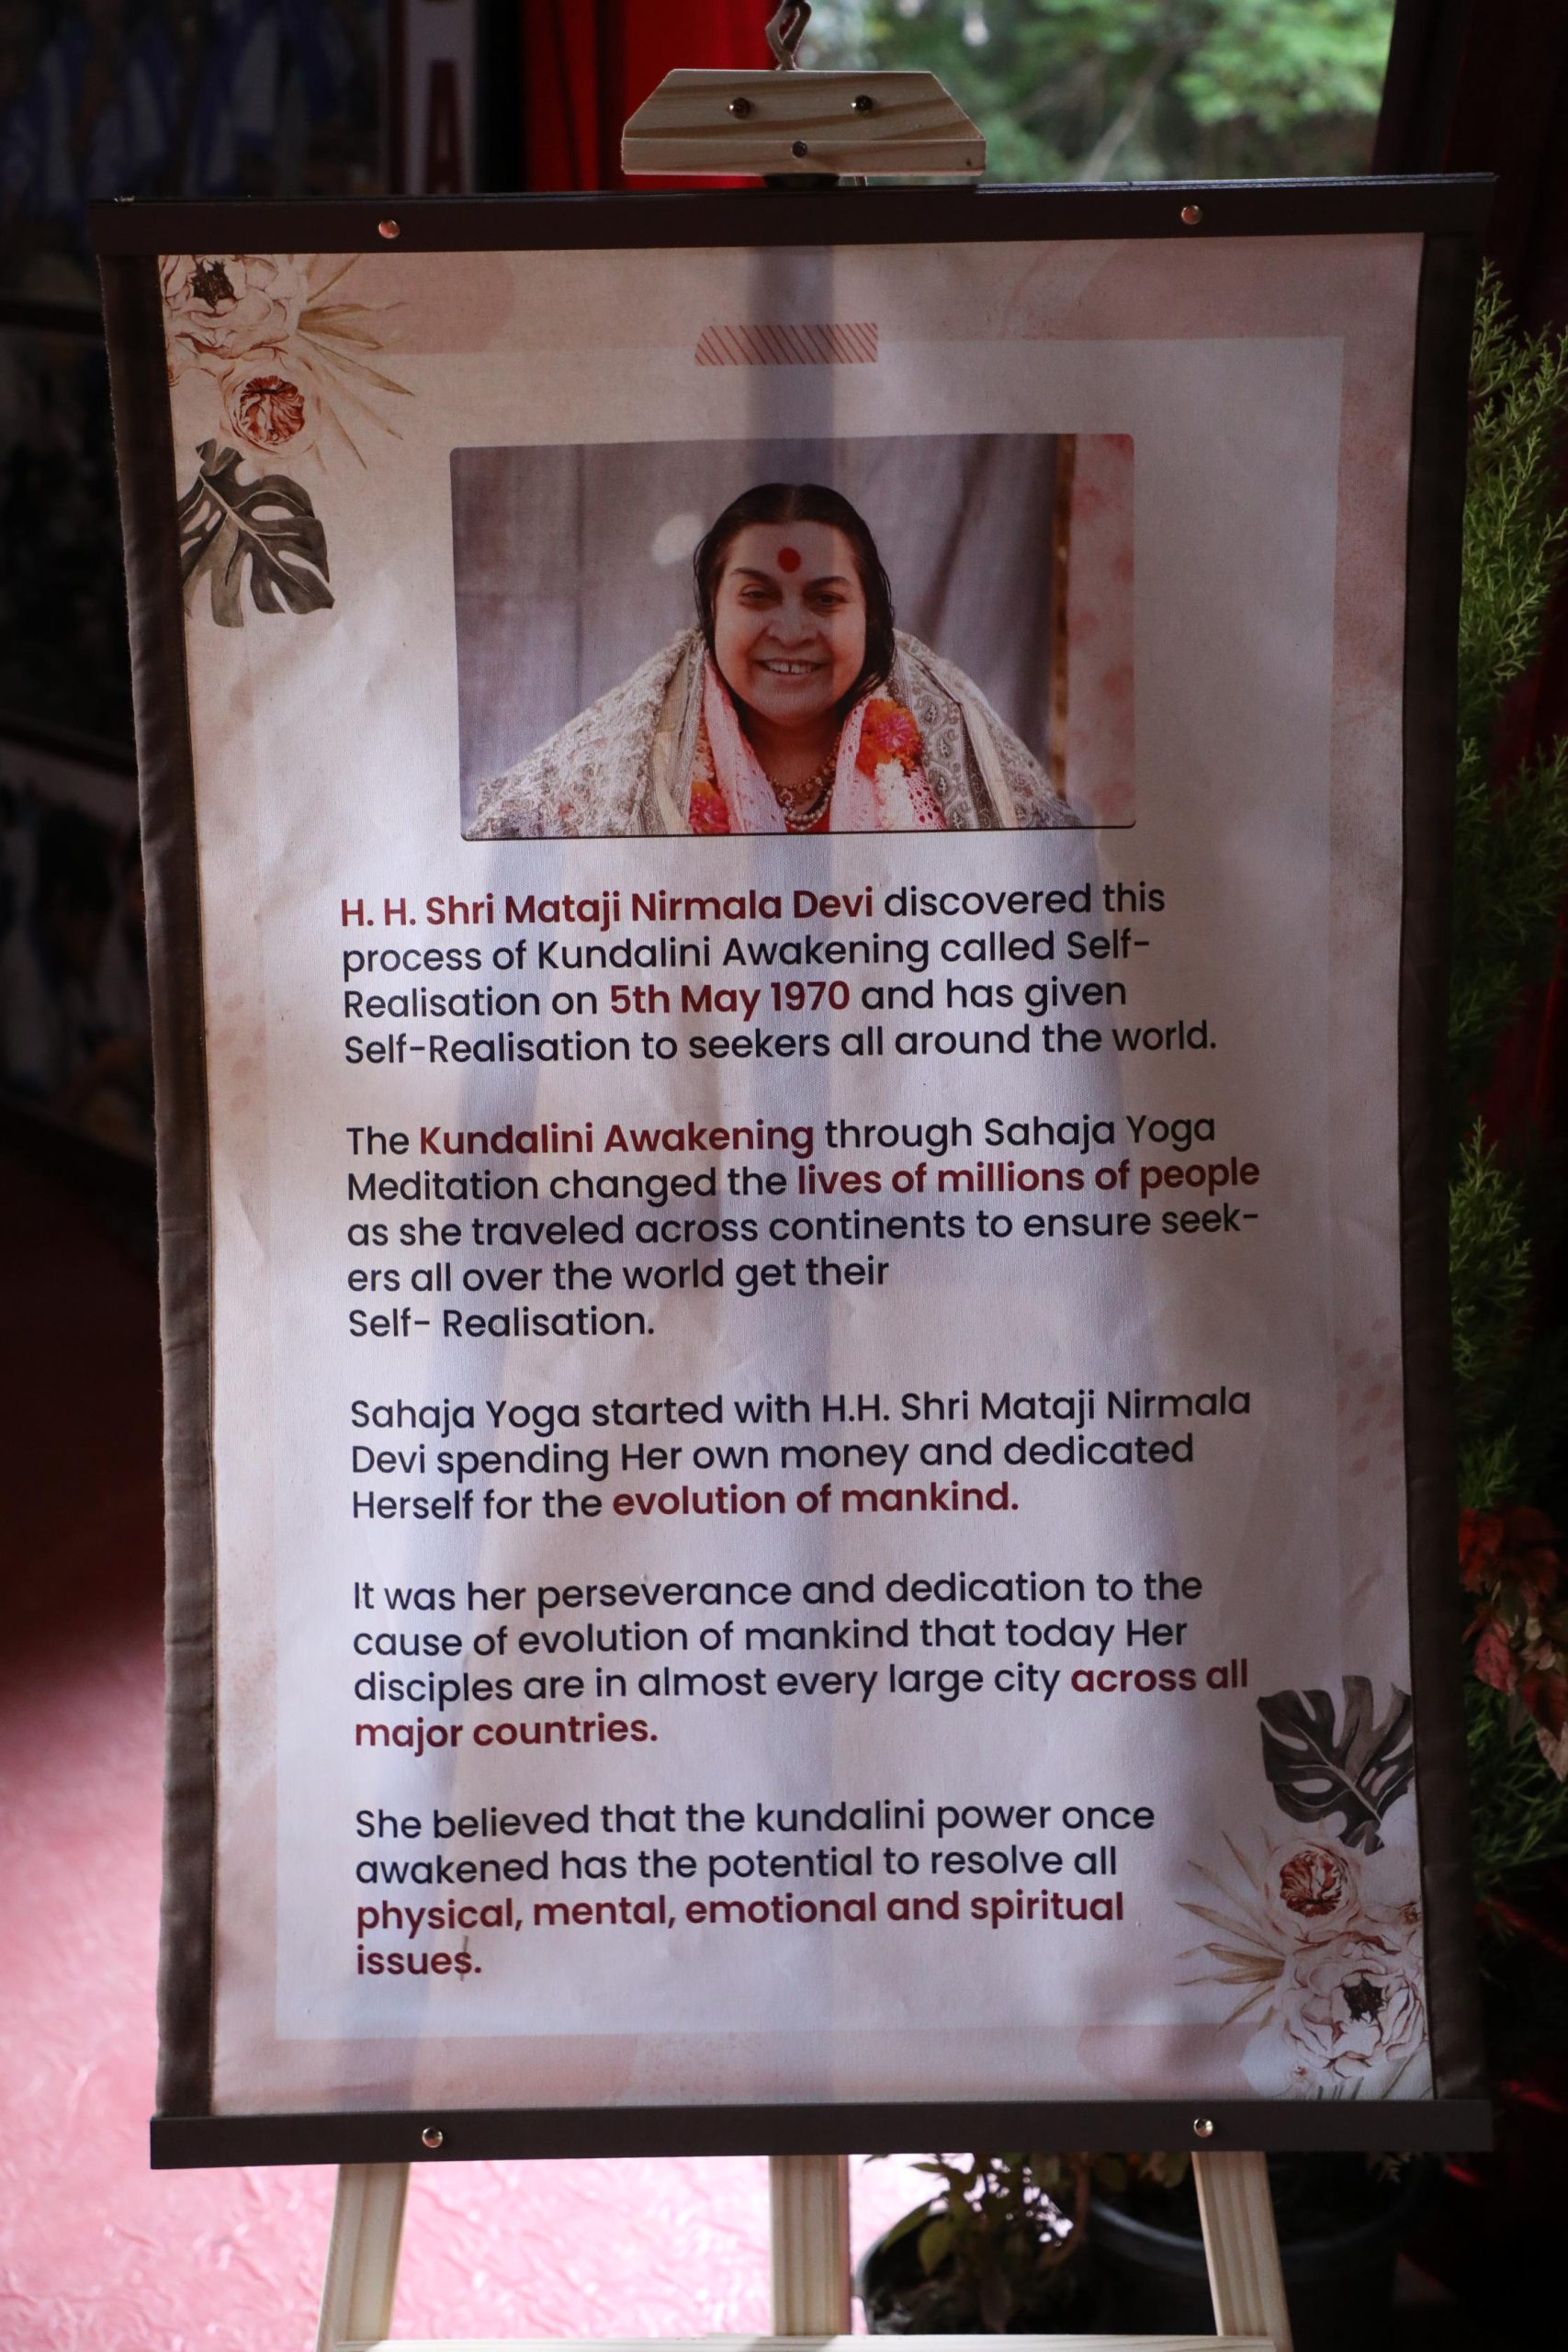 A
H. H. Shri Mataji Nirmala Devi discovered this
process of Kundalini Awakening called Self-
Realisation on 5th May 1970 and has given
Self-Realisation to seekers all around the world.
The Kundalini Awakening through Sahaja Yoga
Meditation changed the lives of millions of people
as she traveled across continents to ensure seek-
ers all over the world get their
Self- Realisation.
Sahaja Yoga started with H.H. Shri Mataji Nirmala
Devi spending Her own money and dedicated
Herself for the evolution of mankind.
It was her perseverance and dedication to the
cause of evolution of mankind that today Her
disciples are in almost every large city across all
major countries.
She believed that the kundalini power once
awakened has the potential to resolve all
physical, mental, emotional and spiritual
issues.